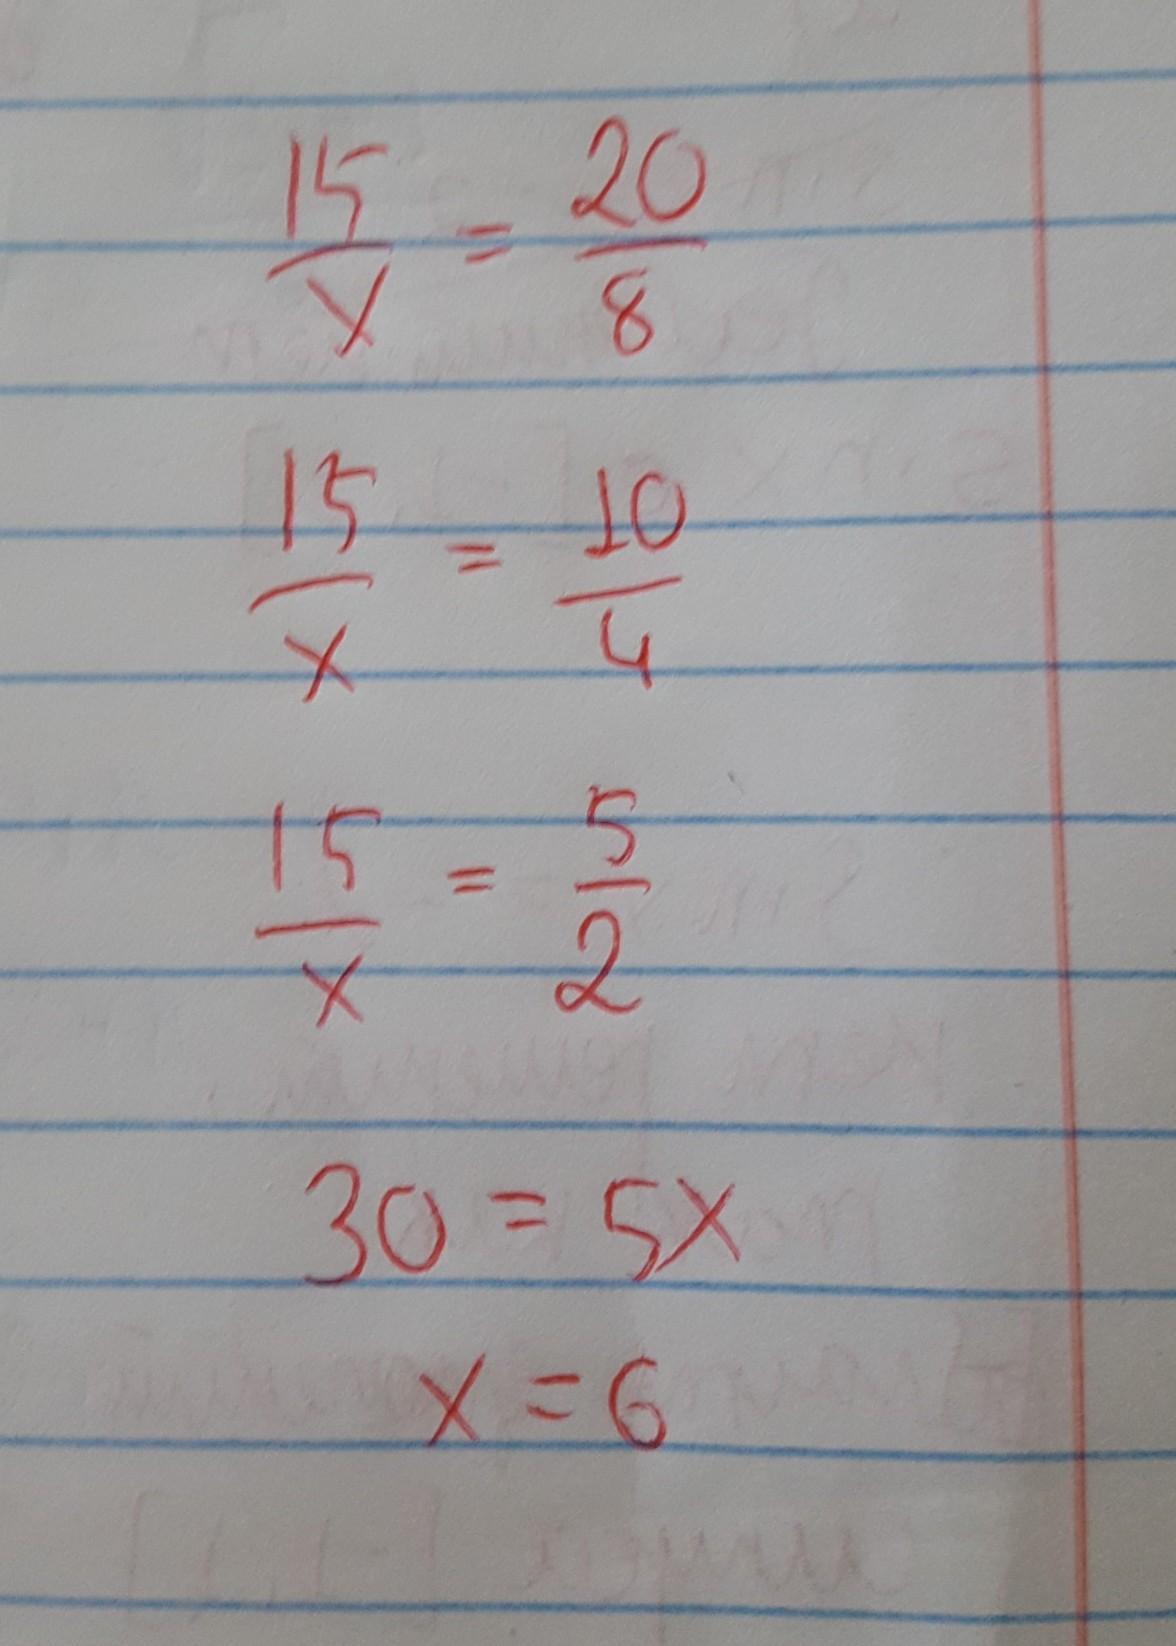 15/x = 20/8
15/x = 10/4
15/x = 5/2
30 = 5x
x = 6